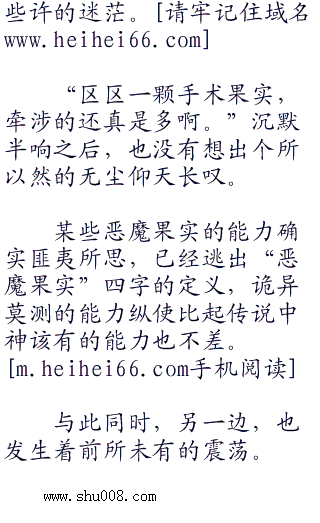 些许的迷茫。[请牢记住域名
www.heihei66.com]
“区区一颗手术果实，
牵涉的还真是多啊。”沉默
半响之后，也没有想出个所
以然的无尘仰天长叹。
某些恶魔果实的能力确
实匪夷所思，已经逃出“恶
魔果实”四字的定义，诡异
莫测的能力纵使比起传说中
神该有的能力也不差。
[m.heihei66.com手机阅读]
与此同时，另一边，也
发生着前所未有的震荡。
www.shu008.com